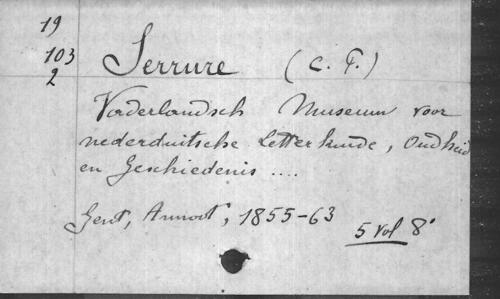 19
103
2
Serrure (C. P.)
Vaderlandsch Museum voor
nederduitsche Letterkunde, Oudheid
en Geschiedenis ....
Gent, Annoot, 1855-63
5 vol 8°